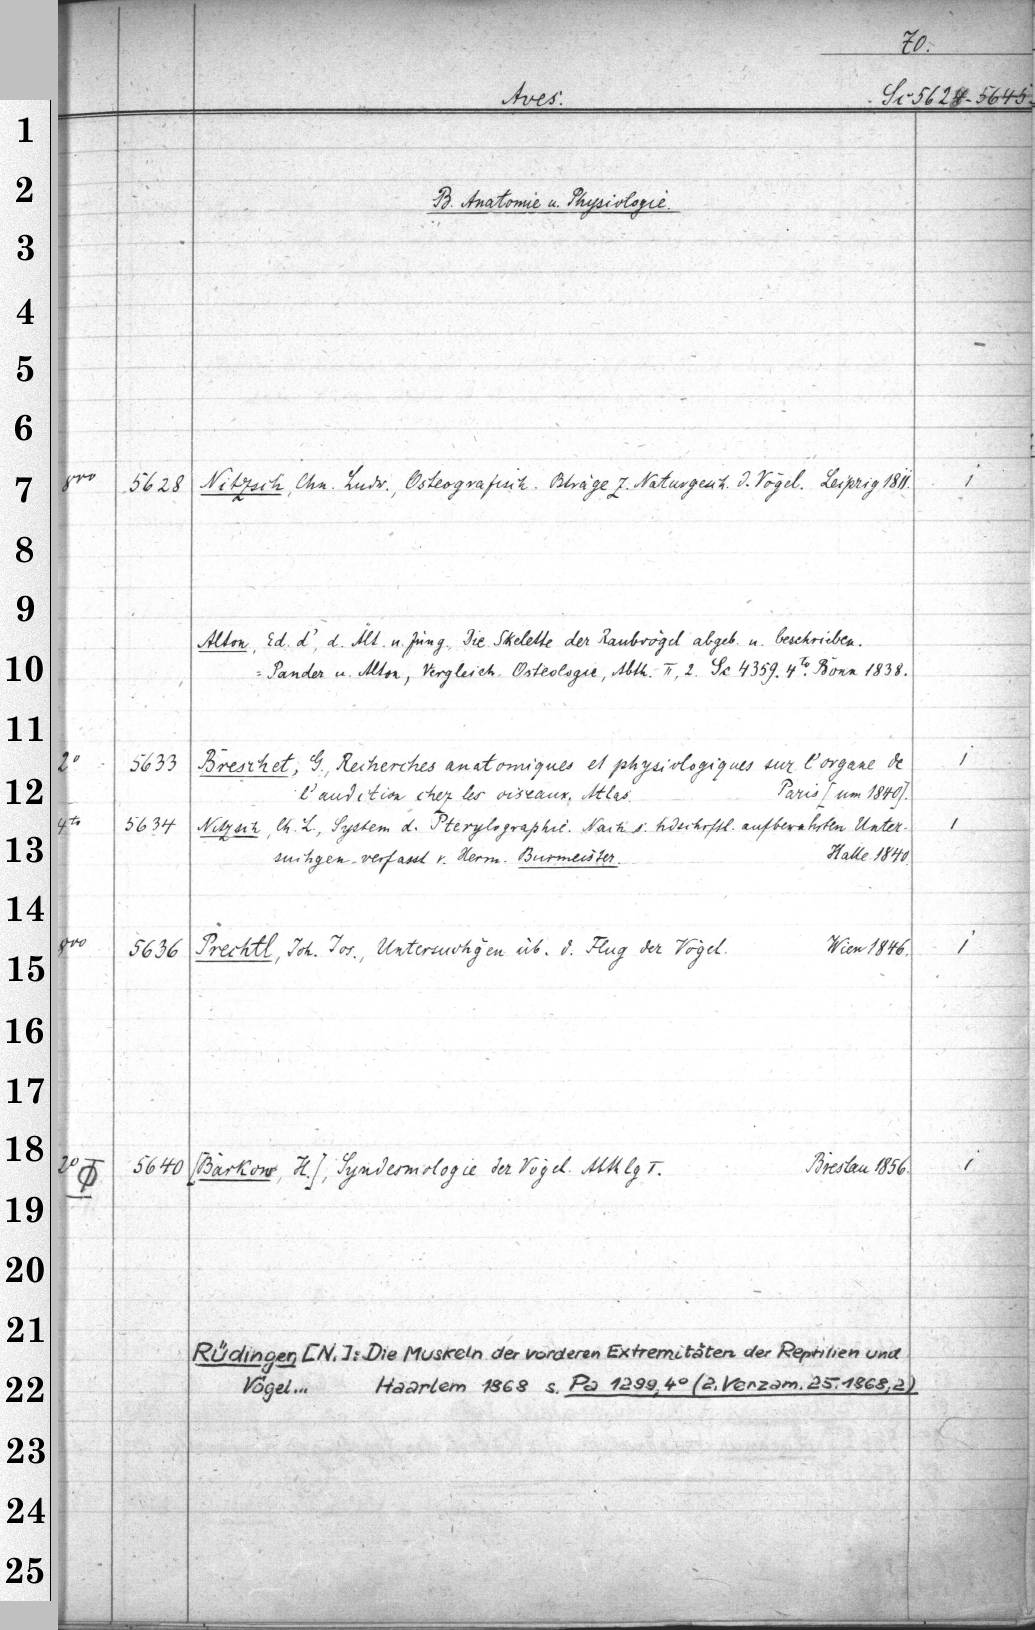 70.
Aves. Sc 5624-5645
B. Anatomie u. Physiologie.
8vo 5628 Nitzsch, Chn. Ludw., Osteografisch. Bträge z. Naturgesch. d. Vögel. Leipzig 1811. 1
Alton, Ed. d', d. Ält. u. Jüng. Die Skelette der Raubvögel abgeb. u. beschrieben.
= Pander u. Alton, Vergleich. Osteologie, Abth. II, 2. Sc 4359. 4to. Bonn 1838.
2o 5633 Breschet, G., Recherches anatomiques et physiologiques sur l'organe de 1
l'audition chez les oiseaux. Atlas. Paris [um 1840].
4to 5634 Nitzsch, Ch. L., System d. Pterylographie. Nach s. hdschrftl. aufbewahrten Unter- 1
suchgen verfasst v. Herm. Burmeister. Halle 1840.
8vo 5636 Prechtl, Joh. Jos., Untersuchgen üb. d. Flug der Vögel. Wien 1846. 1
2o Φ 5640 [Barkow, H.], Syndesmologie der Vögel. Abthlg I. Breslau 1856. 1
Rüdingen [N.]: Die Muskeln der vorderen Extremitäten der Reptilien und
Vögel... Haarlem 1868 s. Pa 1299, 4o (2. Verzam. 25. 1868, 2)
1
2
3
4
5
6
7
8
9
10
11
12
13
14
15
16
17
18
19
20
21
22
23
24
25